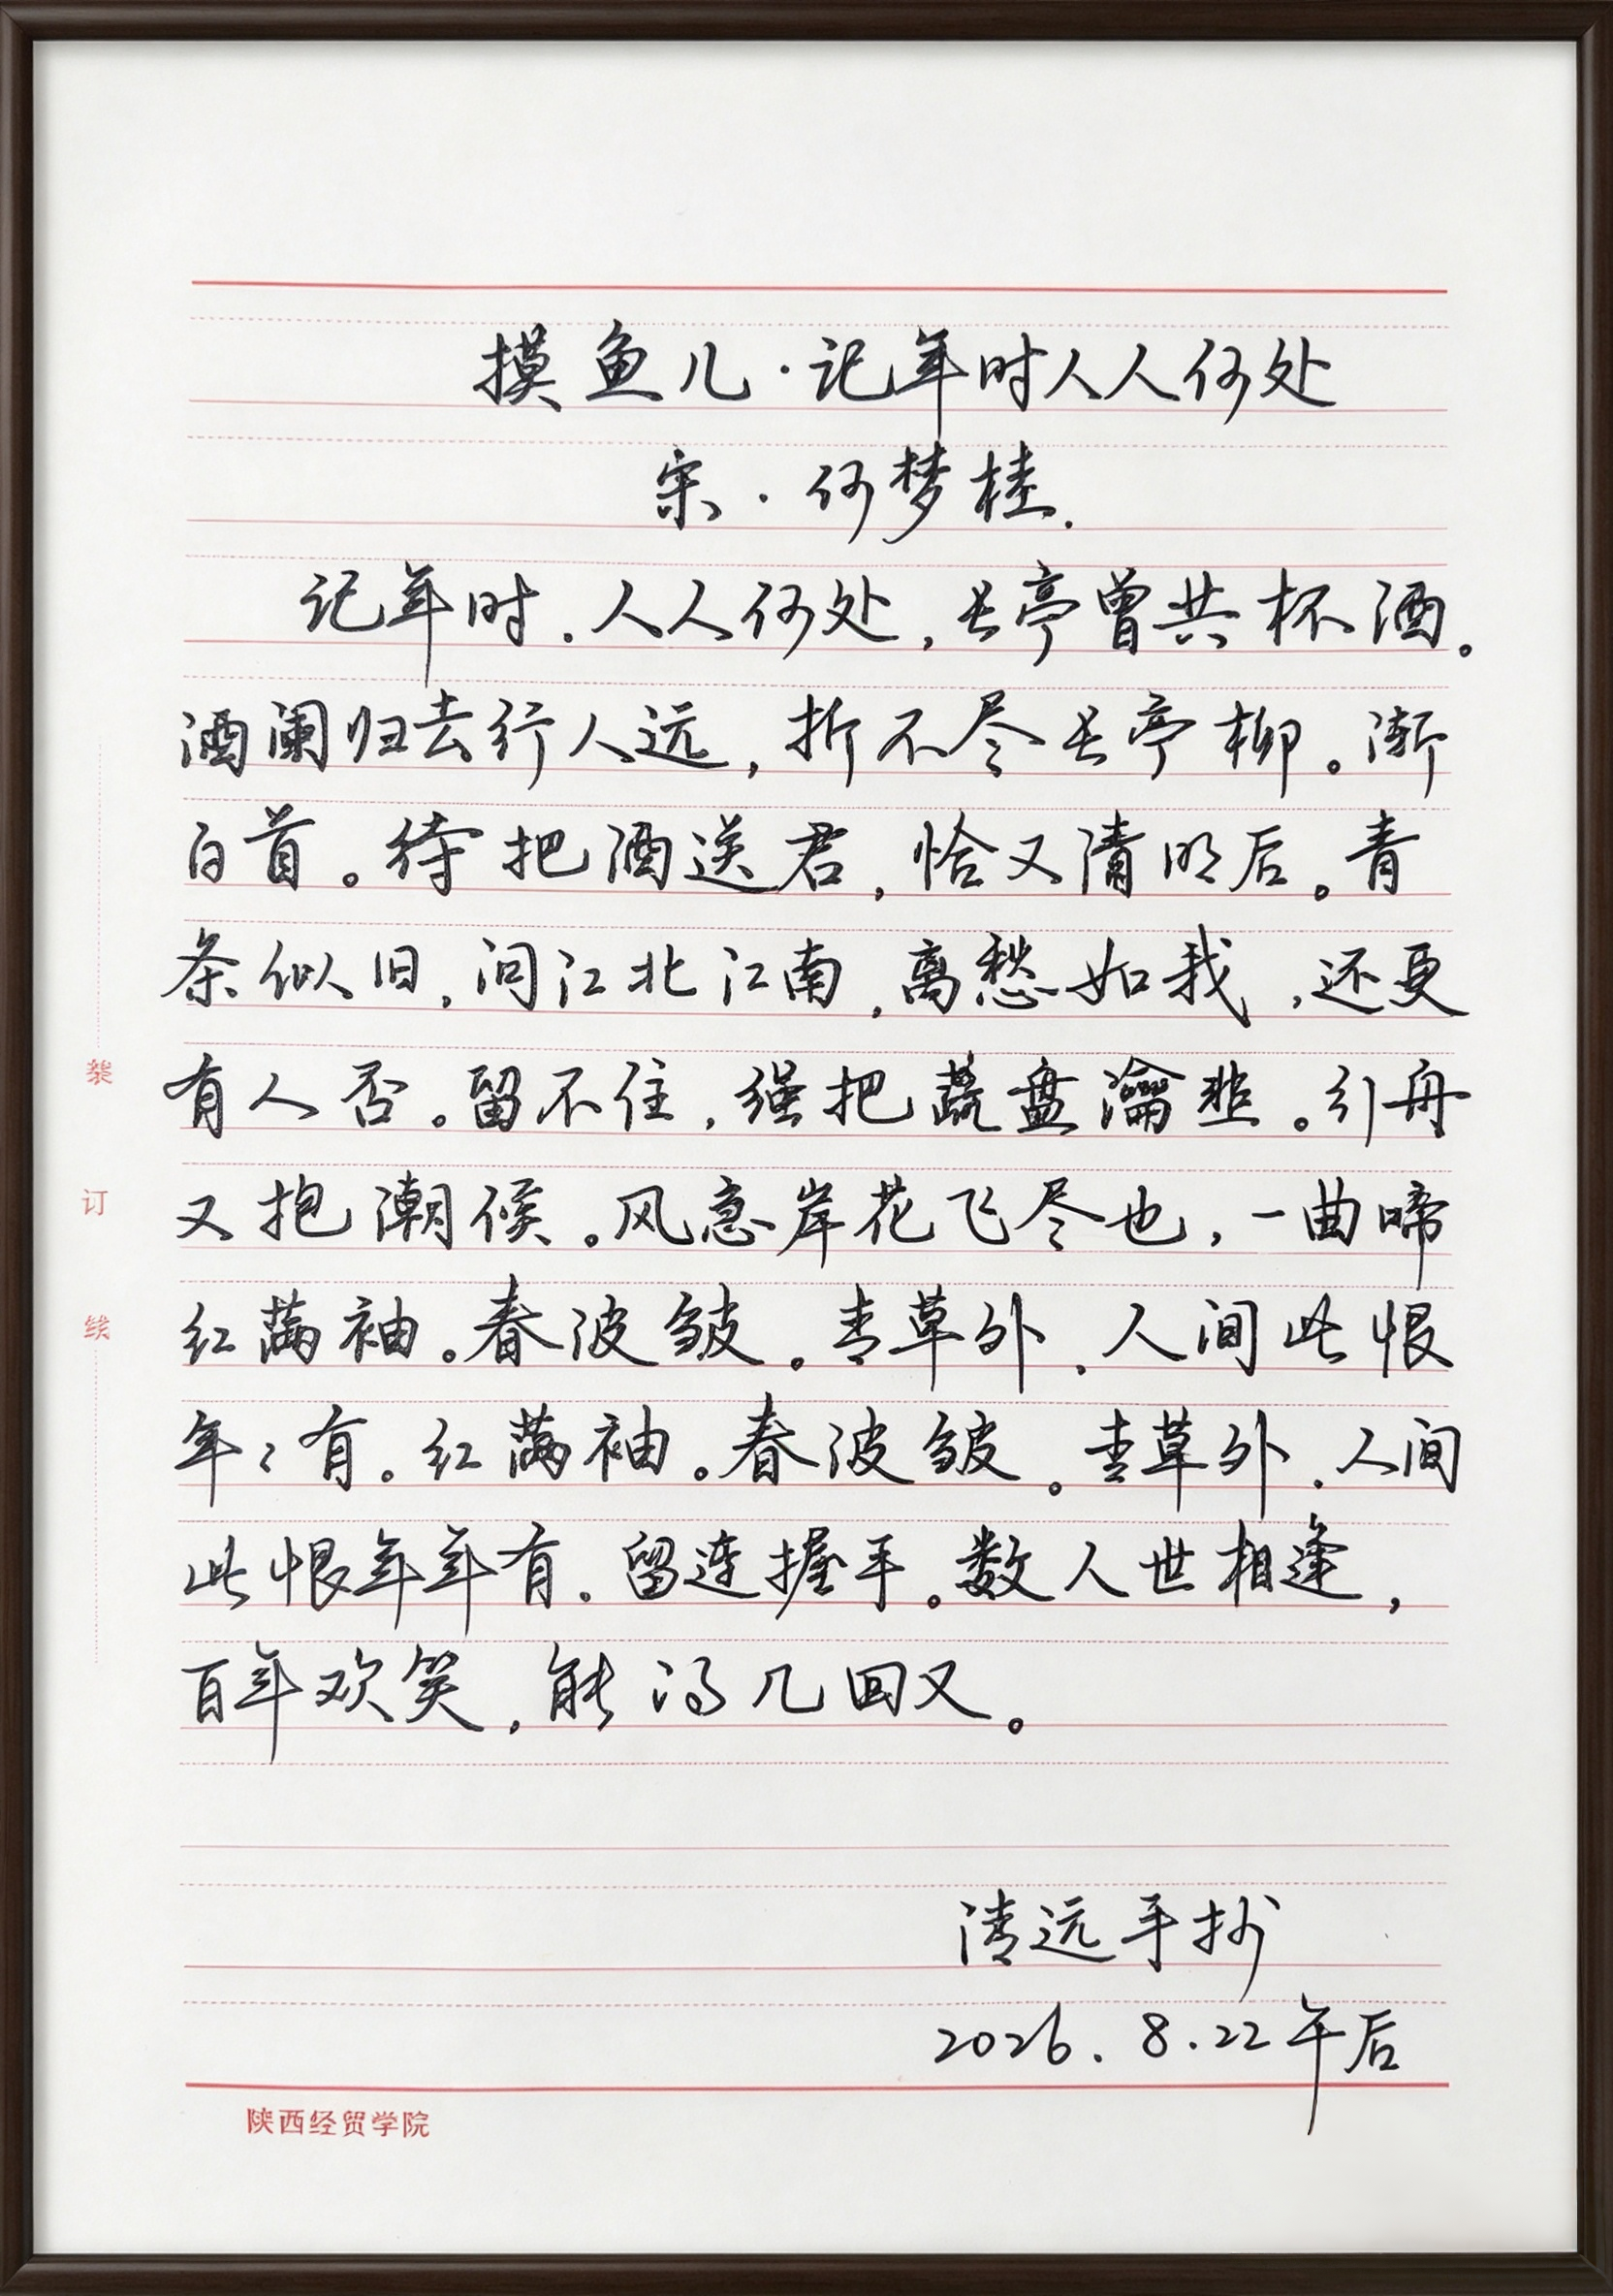 摸鱼儿·记年时人人何处
宋·何梦桂.
记年时.人人何处,长亭曾共杯酒。
酒阑归去行人远,折不尽长亭柳。渐
白首。待把酒送君,恰又清明后。青
条似旧,问江北江南,离愁如我,还更
有人否。留不住,强把蔬盘瀹韭。引舟
又抱潮候。风急岸花飞尽也,一曲啼
红满袖。春波皱。青草外.人间此恨
年々有。红满袖。春波皱。青草外.人间
此恨年年有.留连握手。数人世相逢,
百年欢笑,能得几回又。
清远手抄
2026.8.22午后
陕西经贸学院
装
订
线